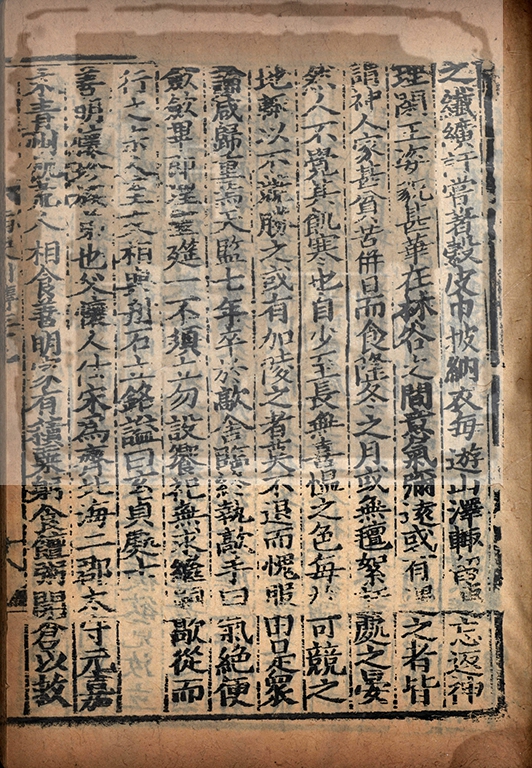 之纖纊訏嘗著穀皮巾披納衣每遊山澤輒留連忘返神
理閑正姿貌甚華在林谷之間意氣彌遠或有遇之者皆
謂神人家甚貧苦併日而食隆冬之月或無氊絮訏處之晏
然人不覺其飢寒也自少至長無喜慍之色每於可競之
地輒以不競勝之或有加陵之者莫不退而愧服由是衆
論咸歸重焉天監七年卒於歊舍臨終執歊手曰氣絶便
歛歛畢即埋靈筵一不須立勿設饗祀無求繼嗣歊從而
行之宗人至友相與刊石立銘謚曰玄貞處士
善明懷珍族弟也父懷人仕宋為齊北海二郡太守元嘉
末青州飢荒人相食善明家有積粟躬食饘粥開倉以救